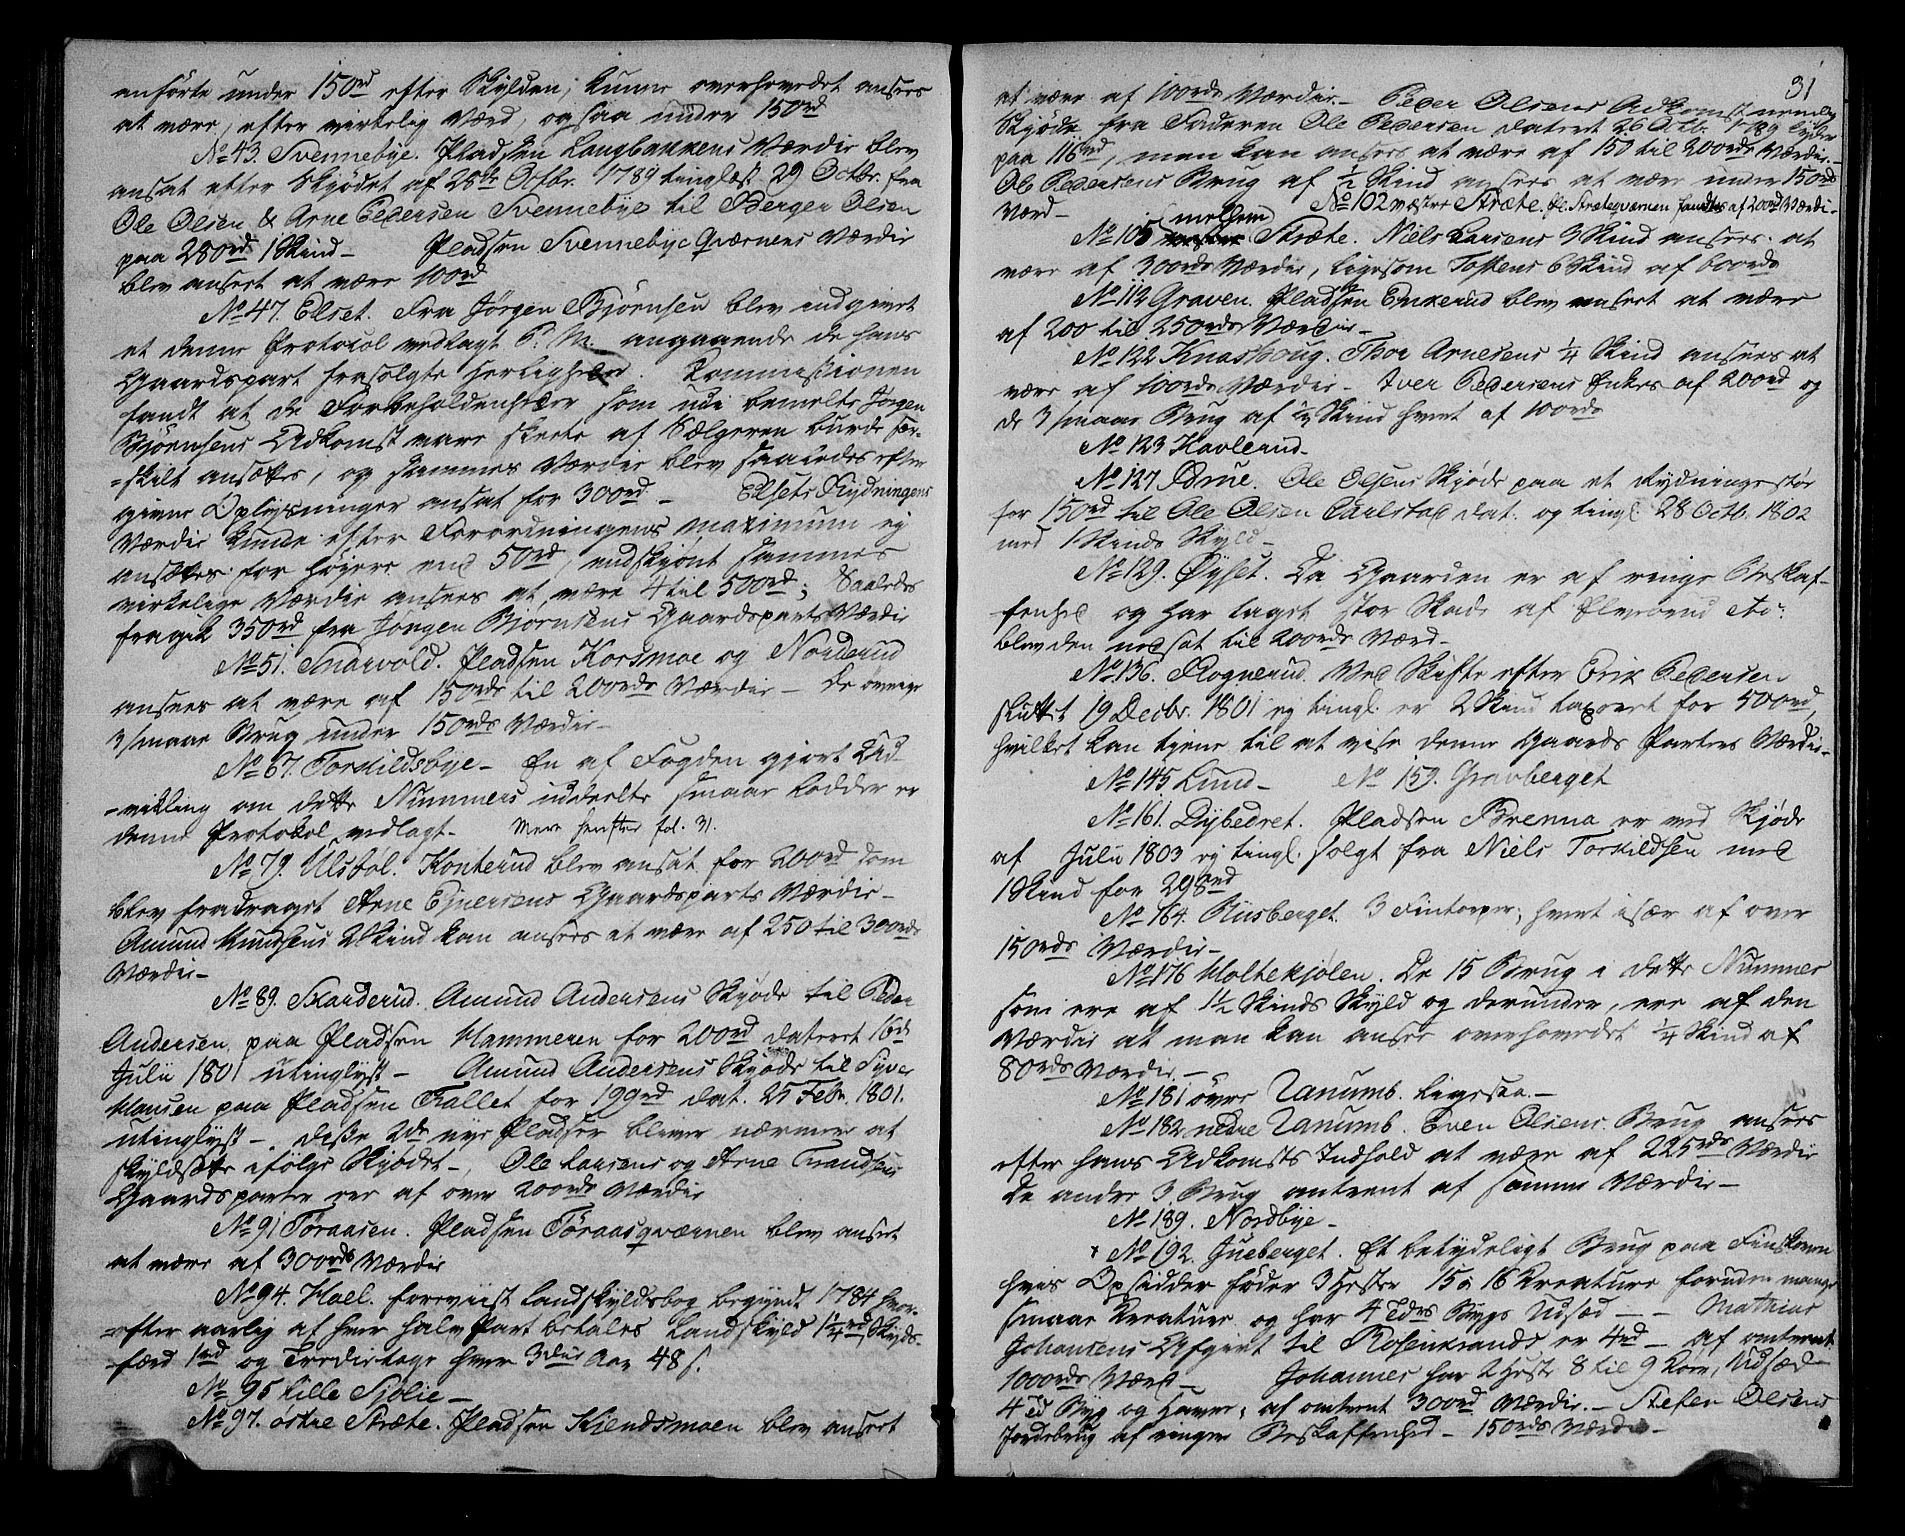 anförte under 150rd efter Skylden, kunne overhovedet ansees
at være, efter virkelig Værd, ogsaa under 150rd
No 43. Svennebye. Pladsen Langbakkens Værdie blev
ansat efter Skjødet af 28de Octbr. 1789 tinglæst 29 Octbr. fra
Ole Olsen & Arne Pedersen Svennebye til Berger Olsen
paa 280rd 1 Skind - Pladsen Svennebye Qværnens Værdie
blev anseet at være 100rd
No 47. Elset. Fra Jørgen Bjørnsen blev indgivet
et denne Protocol vedlagt P. M. angaaende de hans
Gaardspart frasolgte Herligheder. Commissionen
fandt at de Forbeholdenheder som udi bemelte Jørgen
Bjørnsens Adkomst vare skeete af Sælgeren burde sær-
=skilt ansættes, og sammes Værdie blev saaledes efter
givne Oplysninger ansat for 300rd - Elsets Rydningens
Værdie kunde efter Forordningens maximum ej
ansættes for høiere end 50rd, endskjønt sammes
virkelige Værdie ansees at være 4 til 500rd; Saaledes
fragik 350rd fra Jørgen Bjørnsens Gaardsparts Værdie
No 51. Snarvold. Pladsen Korsmoe og Norderud
ansees at være af 150rds til 200rds Værdie - De øvrige
3 smaae Brug under 150rds Værdie -
No 67. Torkildsbye - En af Fogden gjort Ud-
=vikling om dette Nummers uddeelte smaae Lodder er
denne Protokol vedlagt - Mere herefter fol. 31.
No 79. Ulsbøl. Konterud blev ansat for 200rd som
blev fradraget Arne Ejnersens Gaardsparts Værdie -
Amund Knudsens 2 Skind kan ansees at være af 250 til 300rds
Værdie -
No 89. Skarderud. Amund Andersens Skjøde til Peder
Andersen paa Pladsen Hammeren for 200rd dateret 16de
Julii 1801 utinglyst - Amund Andersens Skjøde til Syver
Hansen paa Pladsen Fallet for 199rd dat. 25 Febr. 1801.
utinglyst -. Disse 2de nye Pladser bliver nærmere at
skyldsætte ifølge Skjødet -, Ole Larsens og Arne Trandsens
Gaardsparter ere af over 200rds Værdie
No 91 Toraasen. Pladsen Toraasqværnen blev anseet
at være af 300rds Værdie
No 94. Hoel. foreviist Landskyldsbog begyndt 1784 hvor-
=efter aarlig af hver halv Part betales Landskyld 1¼rd, Skyds-
færd 1rd og Tredietage hver 3die Aar 48 s.
No 95 Lille Sjølie -
No 97. østre Stræte. Pladsen Kjendsmoen blev anseet
31
at være af 100rds Værdie. - Peder Olsens Adkomst nemlig
Skjøde fra Faderen Ole Pedersen dateret 26 Octb. 1789 lyder
paa 116rd, men kan ansees at være af 150 til 200rds Værdie. -
Ole Pedersens Brug af ½ Skind ansees at være under 150rds
Værd - No 102 vestre Stræte. Pl. Stræteqværnen fandtes af 200rd Værdi -
No 105 mellem Stræte. Niels Larsens 3 Skind ansees at
være af 300rds Værdie, ligesom Tostens 6 Skind af 600rds
No 112 Graven. Pladsen Enkerud blev anseet at være
af 200 til 250rds Værdie -
No 122 Knashoug. Thor Arnesens ¼ Skind ansees at
være af 100rds Værdie - Iver Pedersens Enkes af 200rd og
de 3 smaae Brug af ½ Skind hvert af 100rds
No 123 Kavlerud -
No 127 Brue. Ole Olsens Skjøde paa et Rydningestør
for 150rd til Ole Olsen Carlstad dat. og tingl. 28 Octb. 1802
med 1 Skinds Skyld -
No 129. Øyset. Da Gaarden er af ringe Beskaf-
fenhed og har taget stor Skade af Elvebrud etc.
blev den nedsat til 200rds Værd -
No 136. Rognerud. Ved Skifte efter Erik Pedersen
sluttet 19 Decbr. 1801 ej tingl. er 2 Skind taxeret for 500rd,
hvilket kan tjene til at vise denne Gaards Parters Værdie -
No 145 Lund - No 159. Gravberget
No 161. Dybedret. Pladsen Brenna er ved Skjøde
af Julii 1803 ej tingl. solgt fra Niels Torkildsen med
1 Skind for 298rd
No 164. Riisberget. 3 Fintorper, hvert især af over
150rds Værdie -
No 176 Holtekjølen. De 15 Brug i dette Nummer
som ere af 1½ Skinds Skyld og derunder, ere af den
Værdie at man kan ansee overhovedet ¼ Skind af
80rds Værdie. -
No 181 övre Tanumb. Ligesaa. -
No 182 nedre Tanumb. Even Olsens Brug ansees
efter hans Adkomsts Indhold at være af 225rds Værdie
De andre 3 Brug omtrent af samme Værdie -
No 189. Nordbye -
x No 192 Jueberget. Et betydeligt Brug paa Finskoven
hvis Opsidder føder 3 Heste 15 à 16 Kreature foruden mange
smaae Kreature og har 4 Tdrs Bygs Udsæd - - Mathias
Johansens Afgivt til Rosenkrands er 4rd - af omtrent
1000rds Værd - Johannes har 2 Heste 8 til 9 Køer, Udsæd
4 Td Byg og Havre, af omtrent 300rd Værdie. - Stefen Olsens
Jordebrug af ringe Beskaffenhed - 150rds Værdie -